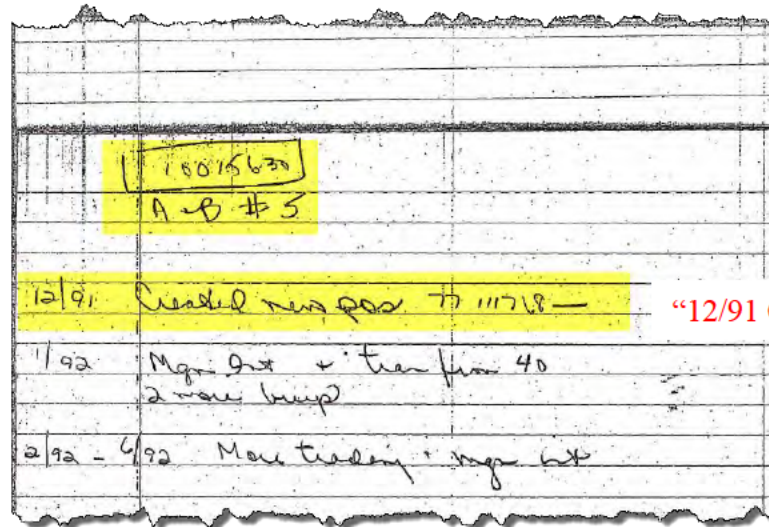 10015630
A-B # 5
12/91 Created new pos 77 111768 —
“12/91
1/92 Mgn Int + tran from 40
2 more
2/92 - 6/92 More trading + mgn int